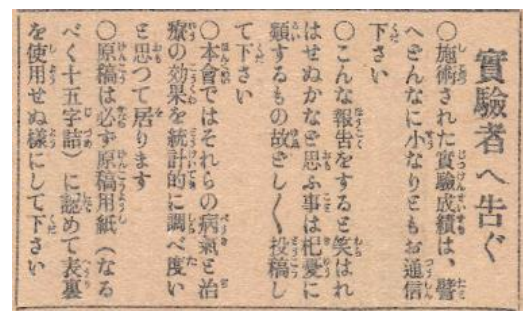 實驗者へ告ぐ
○施術された實驗成績は、譬
へどんなに小なりともお通信
下さい
○こんな報告をすると笑はれ
はせぬかなど思ふ事は杞憂に
類するもの故どし〱投稿し
て下さい
○本會ではそれらの病氣と治
療の効果を統計的に調べ度い
と思つて居ります
○原稿は必ず原稿用紙（なる
べく十五字詰）に認めて表裏
を使用せぬ樣にして下さい